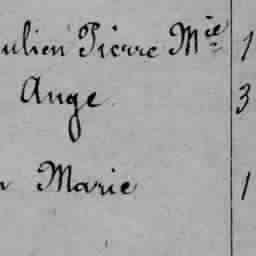 ulien Pierre Mie 1
Ange 3
Marie 1